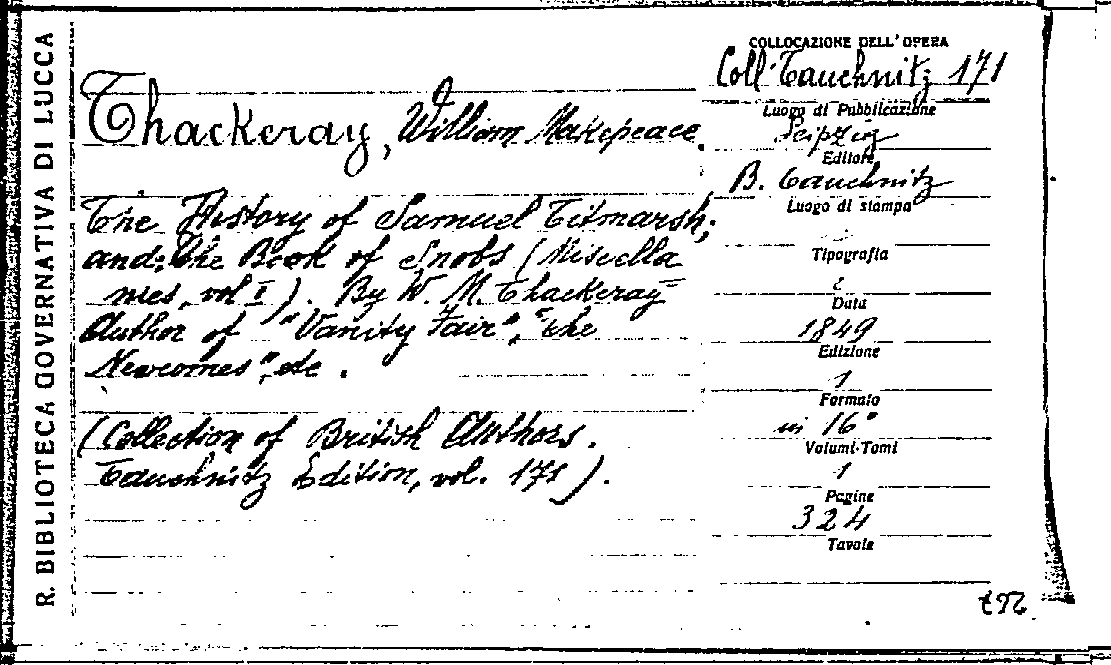 R. BIBLIOTECA GOVERNATIVA DI LUCCA
Thackeray, William Makepeace.
The History of Samuel Titmarsh;
and: the Book of Snobs (Miscella
nies, vol I). By W. M. Thackeray
Author of "Vanity Fair", "the
Newcomes", etc.
(Collection of British Authors.
Tauchnitz Edition, vol. 171).
COLLOCAZIONE DELL'OPERA
Coll. Tauchnitz 171
Luogo di Pubblicazione
Leipzig
Editore
B. Tauchnitz
Luogo di stampa
Tipografia
Data
1849
Edizione
1
Formato
in 16°
Volumi-Tomi
1
Pagine
324
Tavole